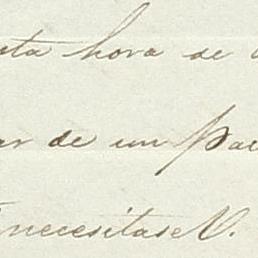 ta hora de
ar de un Pa
necesitase V.